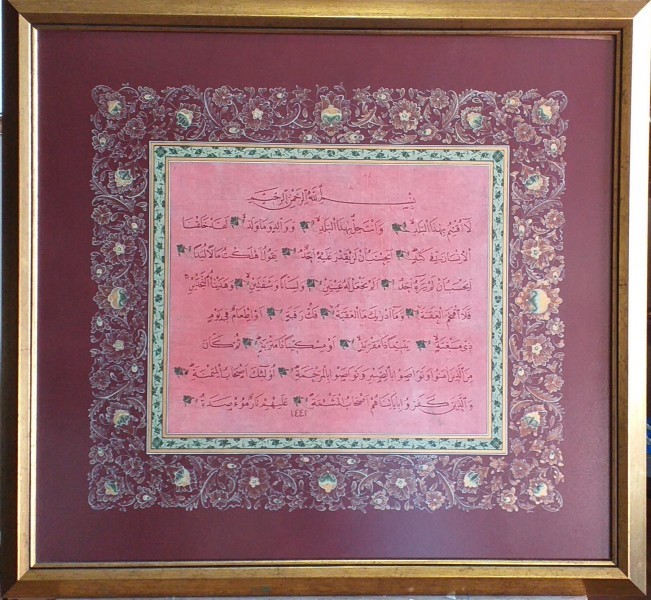 بسم الله الرحمن الرحيم
لا اقسم بهذا البلد وانت حل بهذا البلد ووالد وما ولد لقد خلقنا
الانسان في كبد ايحسب ان لن يقدر عليه احد يقول اهلكت مالا لبدا
ايحسب ان لم يره احد الم نجعل له عينين ولسانا وشفتين وهديناه النجدين
فلا اقتحم العقبة وما ادريك ما العقبة فك رقبة او اطعام في يوم
ذي مسغبة يتيما ذا مقربة او مسكينا ذا متربة ثم كان
من الذين امنوا وتواصوا بالصبر وتواصوا بالمرحمة اولئك اصحاب الميمنة
والذين كفروا باياتنا هم اصحاب المشئمة عليهم نار موصدة
١٤٤١